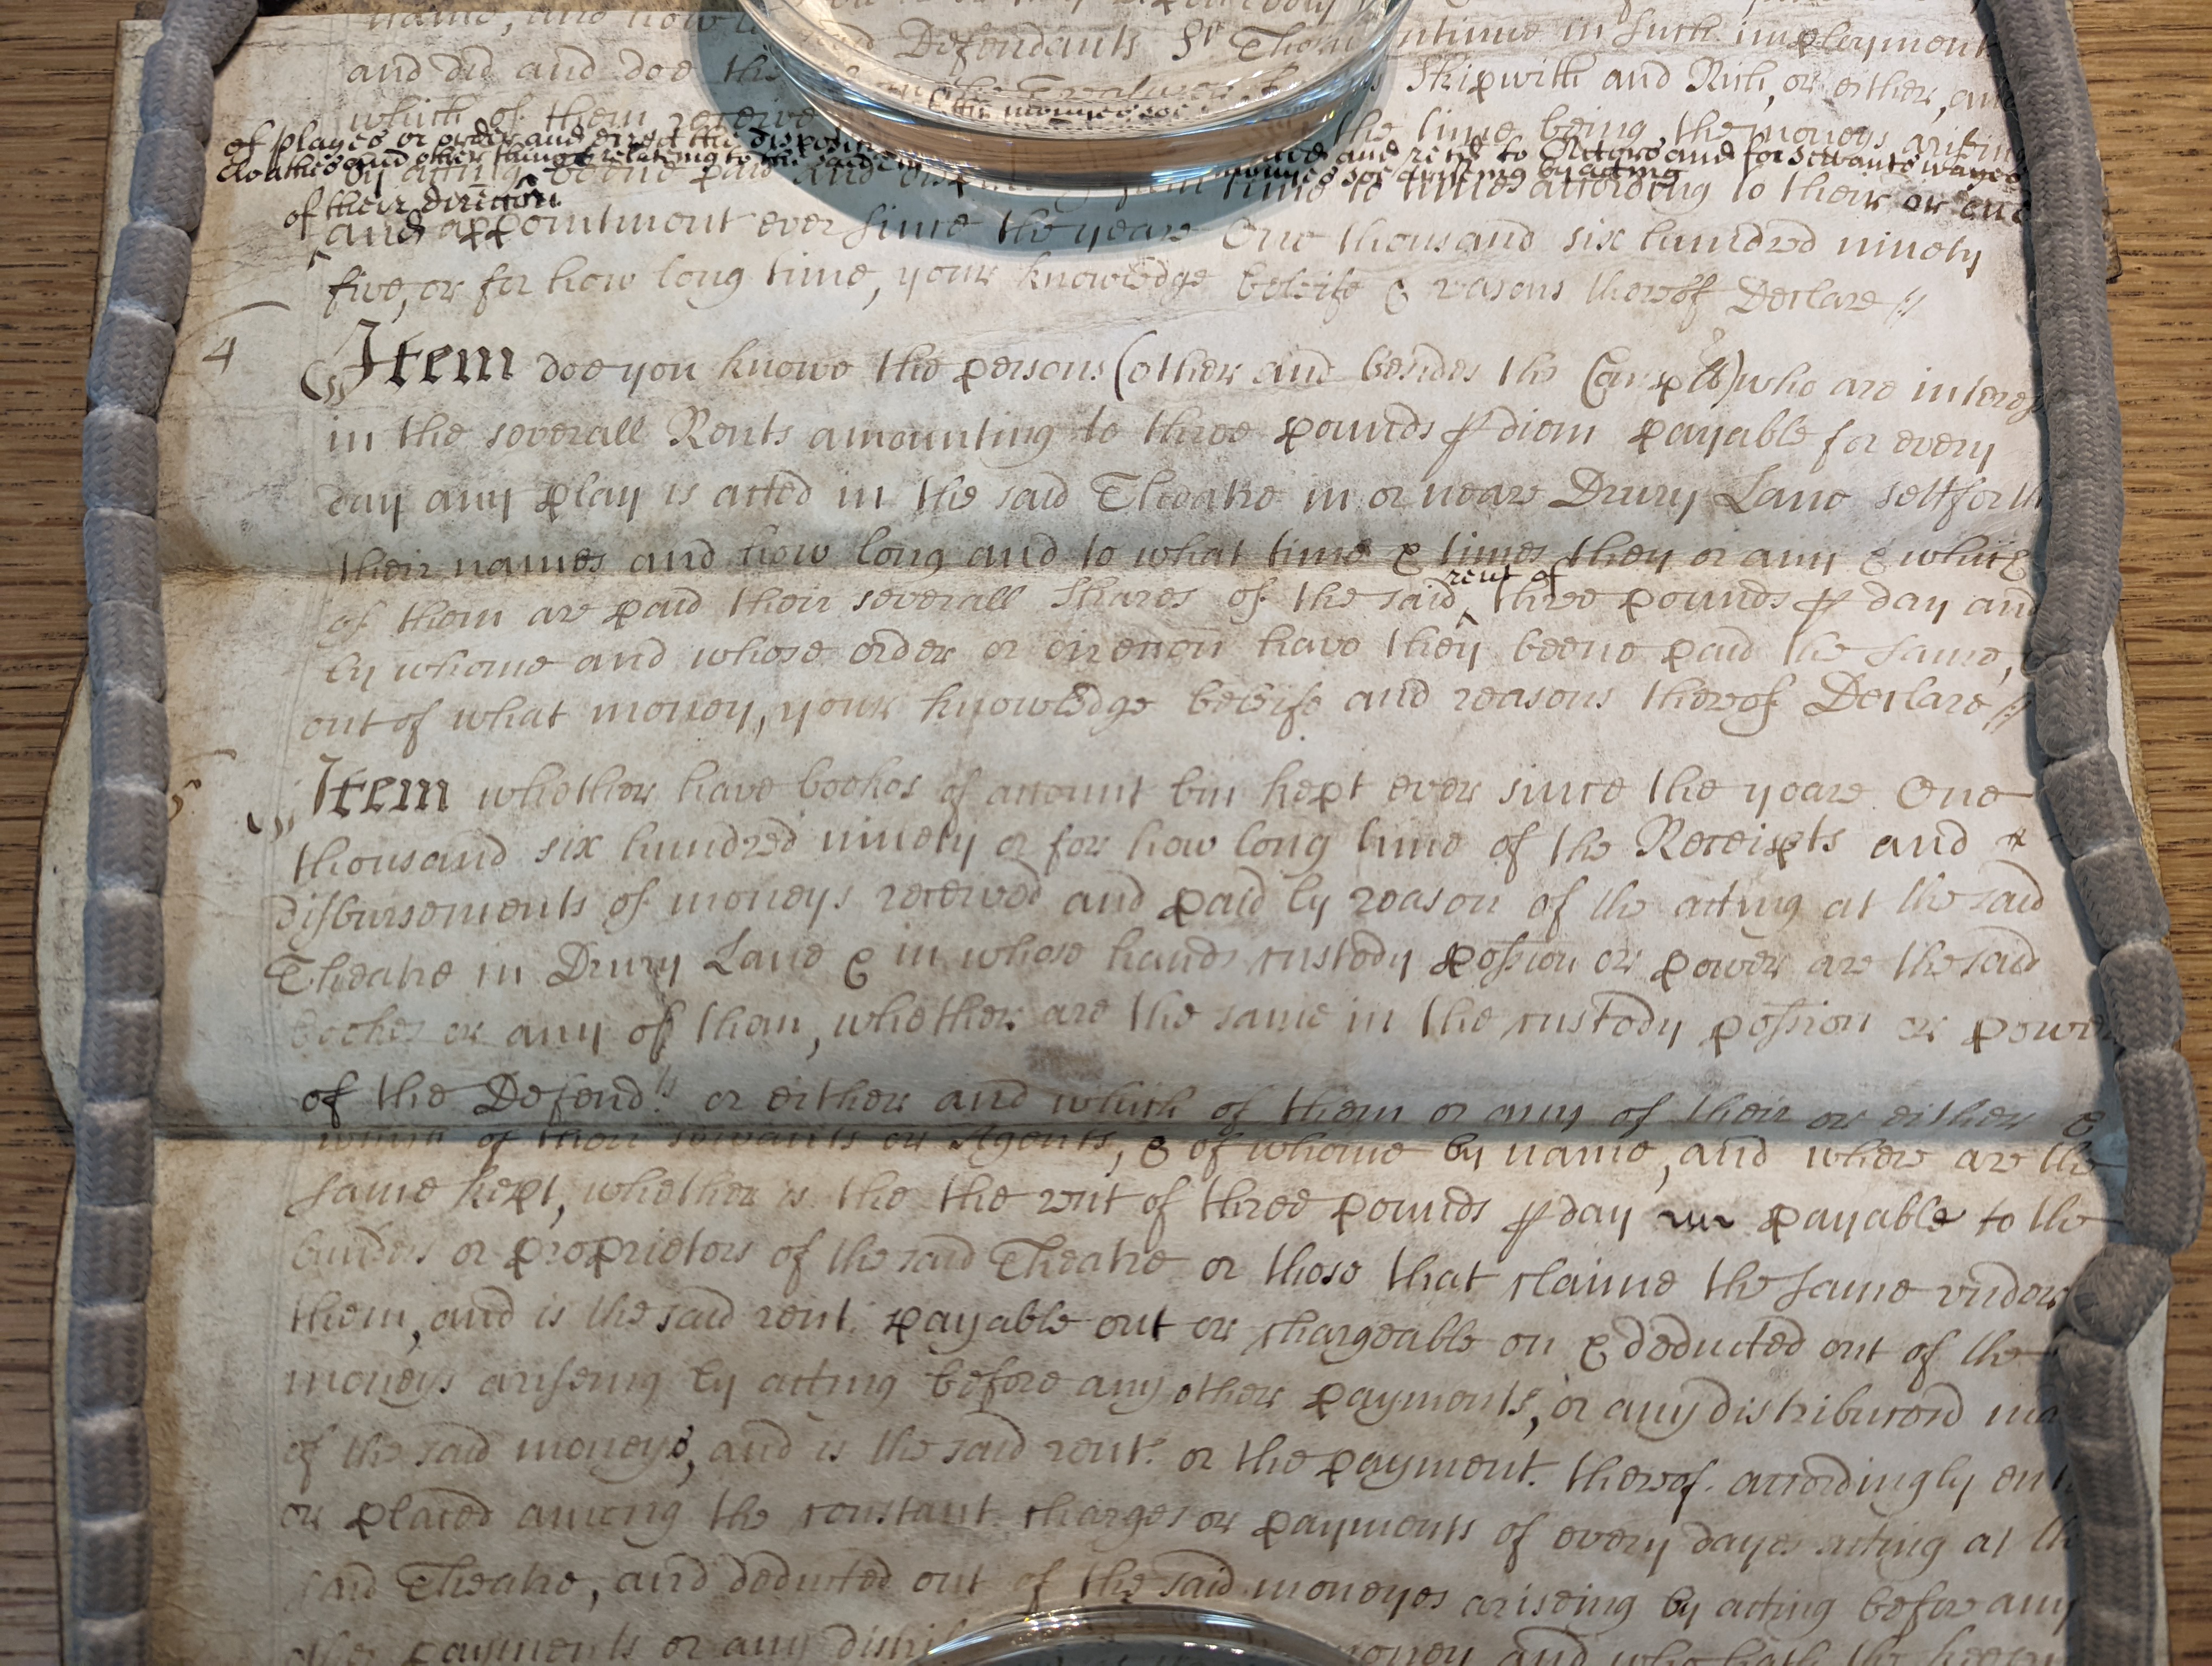 name, and how
said Defendants Sr Thom ntinue in such imployment
and did and doe the Skipwith and Rich, or either, and
which of them receive the time being the moneys arising
of playes or order and direct the disposi
cloathes and other things relateing to the said and rent to Actors and for servants wages
by acting beene paid and time to time according to their or and
of their direccon
and appointment ever since the yeare One thousand six hundred ninety
five, or for how long time, your knowledge beleife & reasons thereof Declare //
4
Item doe you knowe the persons (other and besides the Compllts) who are interes
in the severall Rents amounting to three pounds p diem payable for every
day any play is acted in the said Theatre in or neare Drury Lane settforth
their names and how long and to what time & times they or any & which
rent of
of them are paid their severall Shares of the said ^ three pounds p day and
by whome and whose order or direccon have they beene paid the same,
out of what money, your knowledge beleife and reasons thereof Declare //
5
Item whether have bookes of account bin kept ever since the yeare One
thousand six hundred ninety or for how long time of the Receipts and
disbursements of moneys received and paid by reason of the acting at the said
Theatre in Drury Lane & in whose hands custody possion or power are the said
bookes or any of them, whether are the same in the custody possion or power
of the Defendts or either and which of them or any of their or either &
which of their servants or Agents, & of whome by name, and where are the
same kept, whether is the the rent of three pounds p day payable to the
builders or proprietors of the said Theatre or those that claime the same under
them, and is the said rent payable out or chargeable on & deducted out of the
moneys ariseing by acting before any other payments, or any distribucon ma
of the said moneys, and is the said rent or the payment thereof accordingly ent
or placed among the constant charges or payments of every dayes acting at th
said Theatre, and deducted out of the said moneyes ariseing by acting before any
other payments or any distri money and who hath the keepin